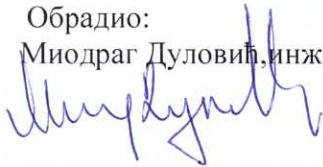 Обрадио:
Миодраг Дуловић,инж